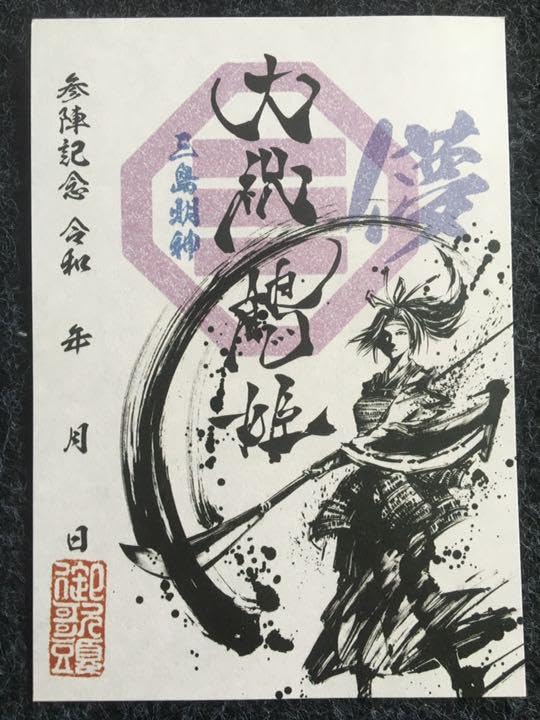 儚
大祝鶴姫
三
三島明神
参陣記念 令和 年 月 日